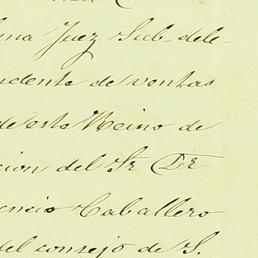 ma Juez Sub-dele-
ndente de ventas
de este Reino de
cion del Sr Dr
encio Caballero
del consejo de S.